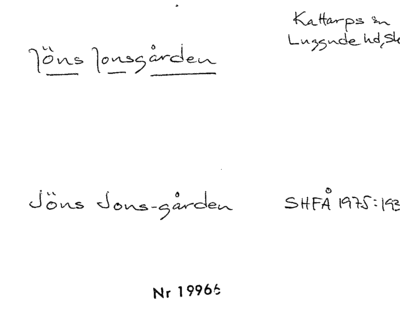 Jöns Jonsgården
Kattarps sn
Luggude hd, Sk
Jöns Jons-gården
SHFÅ 1975:193
Nr 19966